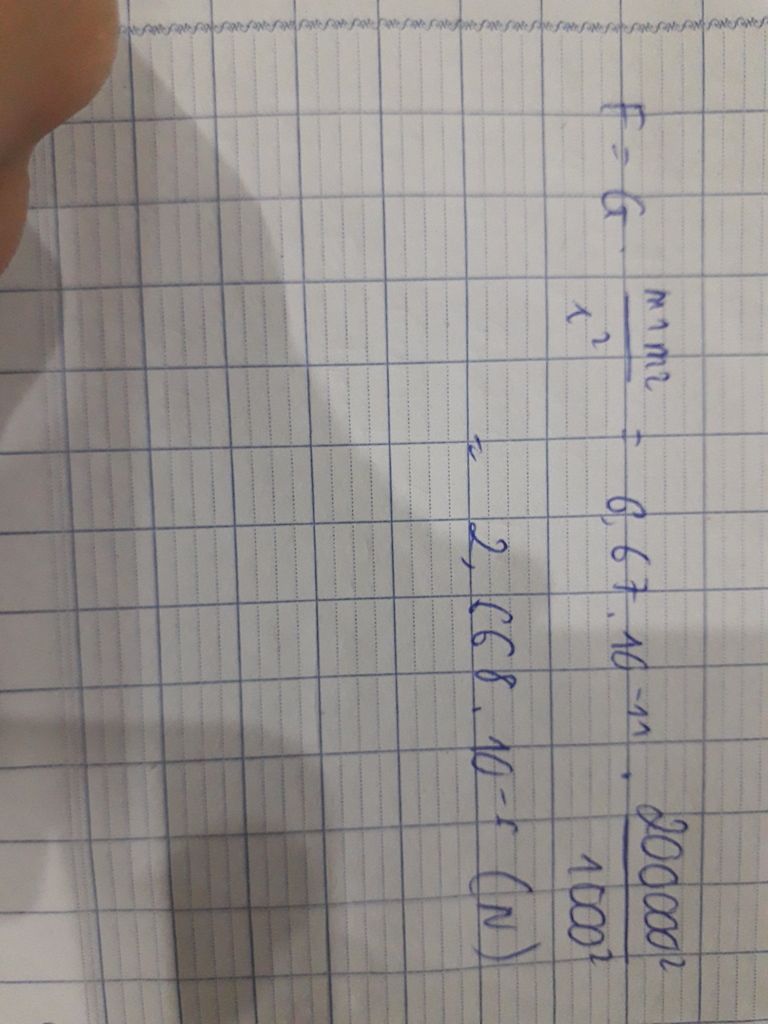 F = G . \frac{m_1 m_2}{r^2} = 6,67 . 10^{-11} . \frac{200000^2}{1000^2}
≈ 2,668 . 10^{-6} (N)